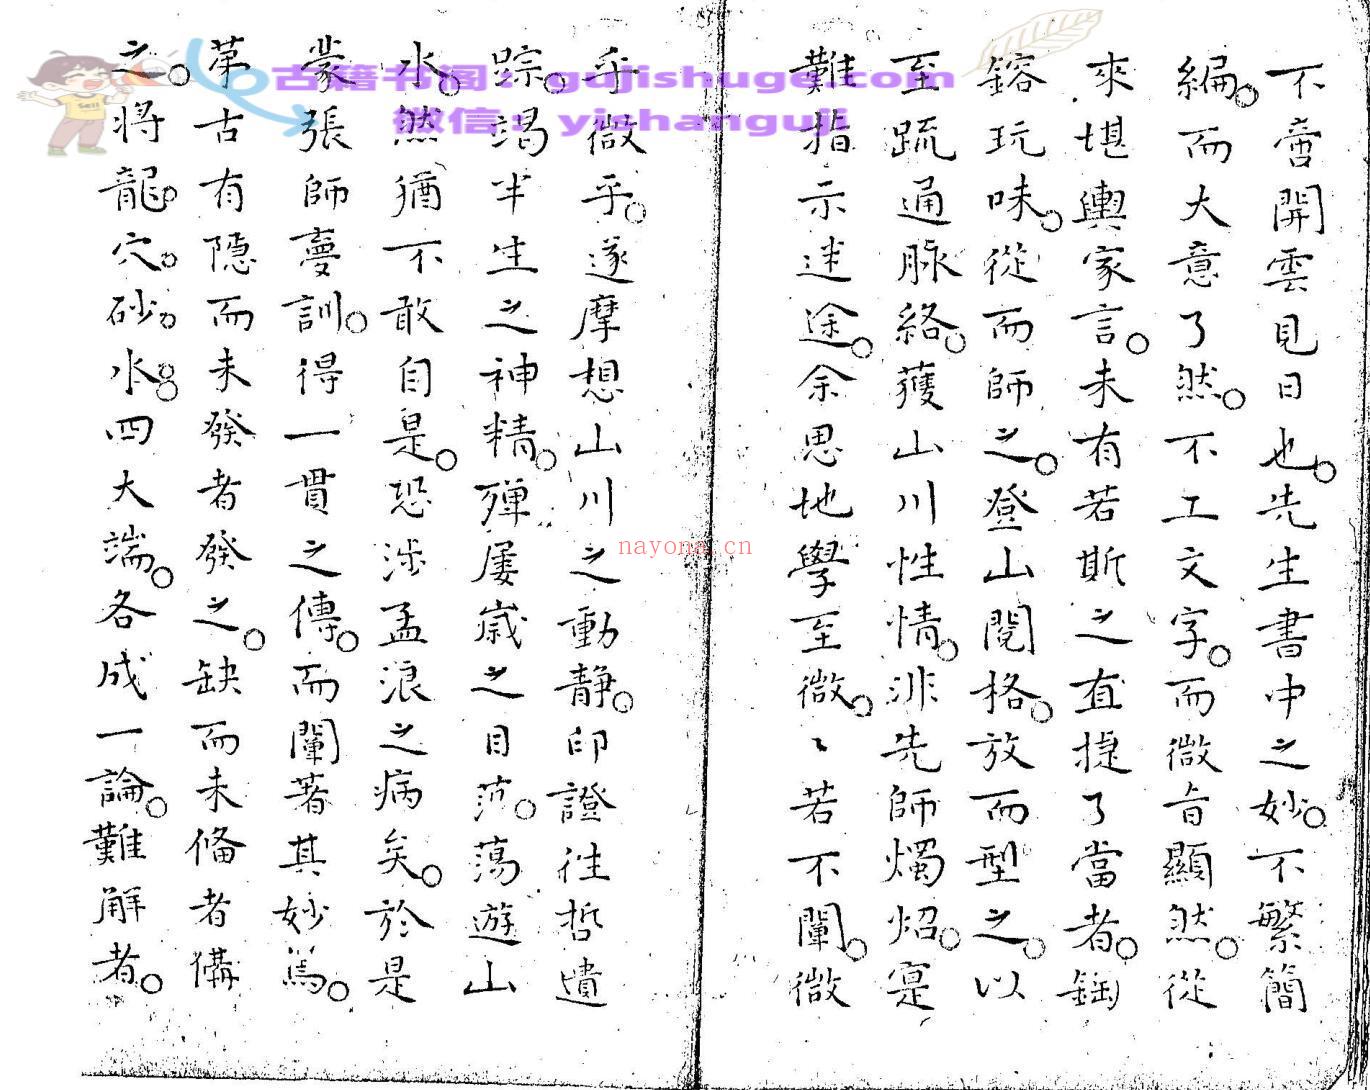 不啻開雲見日也。先生書中之妙。不繁簡
編。而大意了然。不工文字。而微旨顯然。從
來堪輿家言。未有若斯之直捷了當者。
鎔玩味。從而師之。登山閱格。放而型之。以
至疏通脉絡。獲山川性情。非先師燭炤。寔
難指示迷途。余思地學至微。〻若不闡。微
乎微乎。遂摩想山川之動靜。印證往哲遺
踪。竭半生之神精。殫屢歲之目
蕩遊山
水。然猶不敢自是。恐涉孟浪之病矣。於是
蒙張師夢訓。得一貫之傳。而闡著其妙焉。
第古有隱而未發者發之。缺而未備者
之。將龍。穴。砂。水。四大端。各成一論。難解者。
古籍书阁：gujishuge.com
微信：yishanguji
nayona.cn
Sell